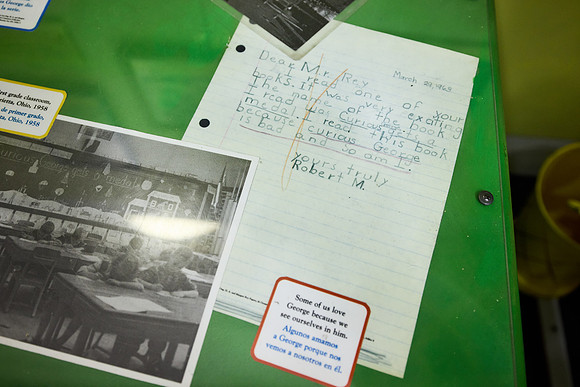 la serie.
grade classroom,
Ohio, 1958
de primer grado,
Ohio, 1958
Dear Mr. Rey
March 29, 1968
I read one of your
books. It was very exating
The name of the book
I read was Curious a
medal. I read this book
because curious George
is bad and so am I.
Yours truly
Robert M.
Some of us love
George because we
see ourselves in him.
Algunos amamos
a George porque nos
vemos a nosotros en él.